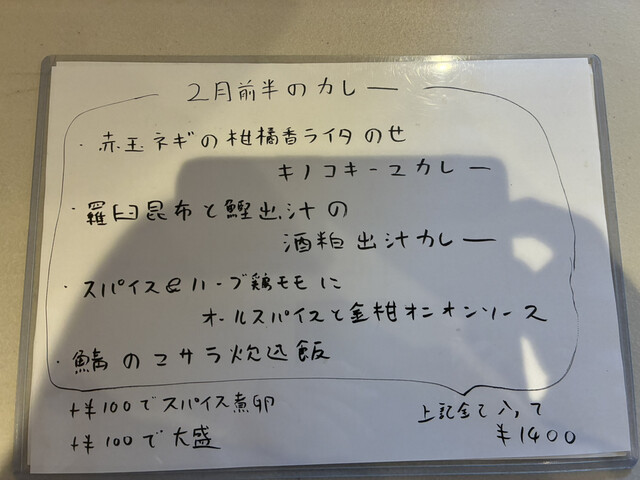 2月前半のカレー
・赤玉ネギの柑橘香ライタのせ
キノコキーマカレー
・羅臼昆布と鰹出汁の
酒粕出汁カレー
・スパイス&ハーブ鶏モモに
オールスパイスと金柑オニオンソース
・鯖のマサラ炊込飯
+¥100でスパイス煮卵
+¥100で大盛
上記全て入って
¥1400